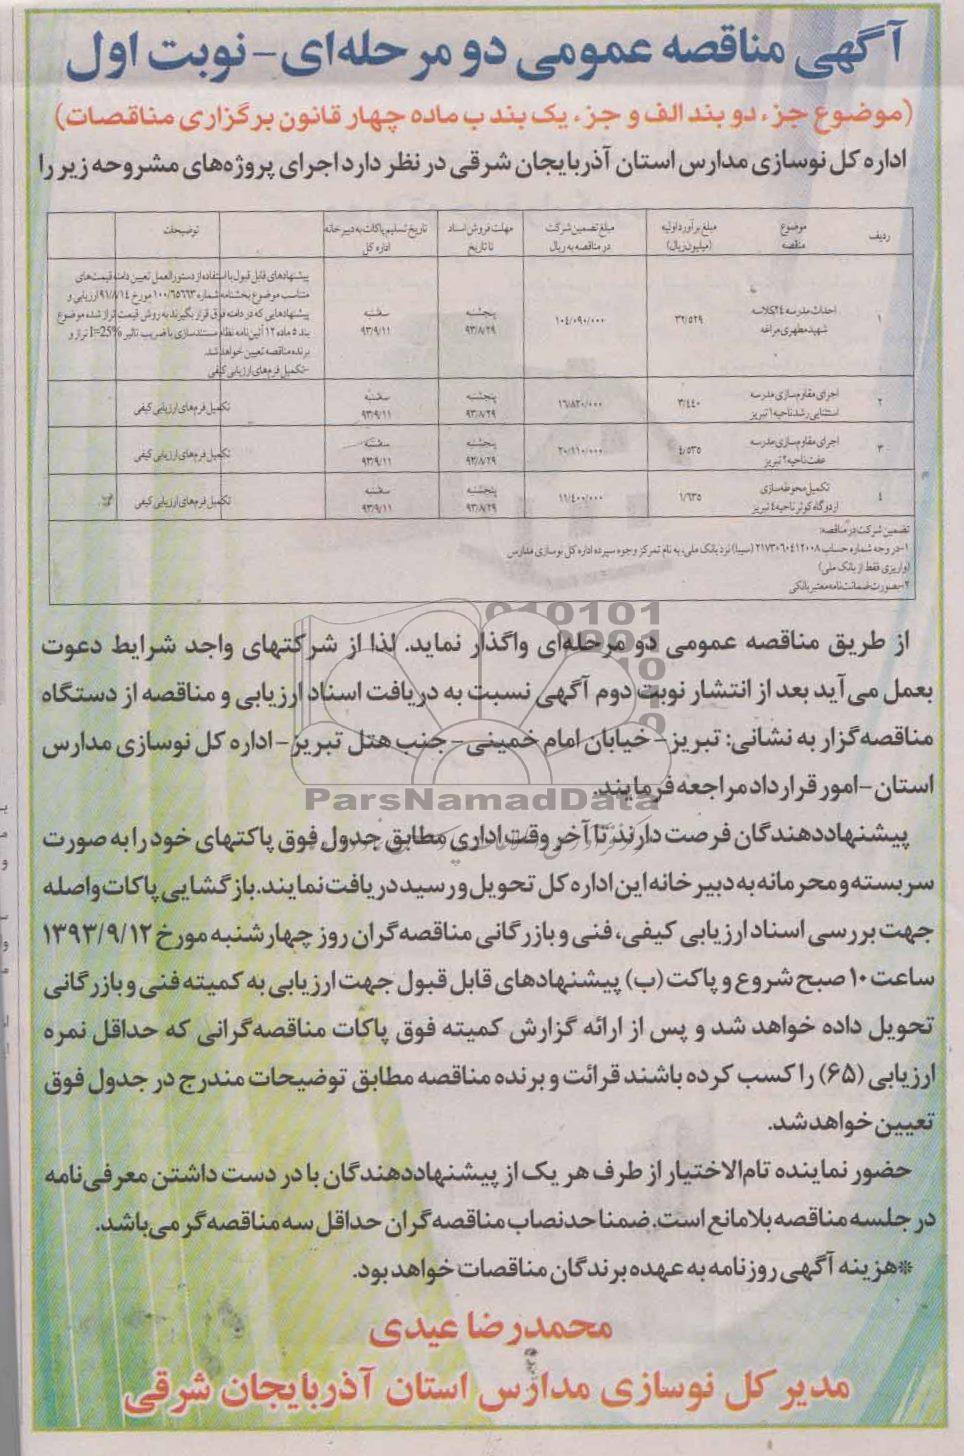 آگهی مناقصه عمومی دو مرحله‌ای - نوبت اول
(موضوع جزء دو بند الف و جزء یک بند ب ماده چهار قانون برگزاری مناقصات)
اداره کل نوسازی مدارس استان آذربایجان شرقی در نظر دارد اجرای پروژه‌های مشروحه زیر را
ردیف | موضوع مناقصه | مبلغ برآورد اولیه (میلیون ریال) | مبلغ تضمین شرکت در مناقصه به ریال | مهلت فروش اسناد تا تاریخ | تاریخ تسلیم پاکات به دبیرخانه اداره کل | توضیحات
۱ | احداث مدرسه ۲۴ کلاسه شهید مطهری مراغه | ۳۲/۵۲۹ | ۱۰۴/۰۹۰/۰۰۰ | پنجشنبه ۹۳/۸/۲۹ | سه‌شنبه ۹۳/۹/۱۱ | پیشنهادهای قابل قبول با استفاده از دستورالعمل تعیین دامنه قیمت‌های
متناسب موضوع بخشنامه شماره ۱۰۰/۶۵۶۶۳ مورخ ۹۱/۸/۱۴ ارزیابی و
پیشنهادهایی که در دامنه فوق قرار بگیرند به روش قیمت تراز شده موضوع
بند ۵ ماده ۱۲ آئین‌نامه نظام مستندسازی با ضریب تاثیر I=25% تراز و
برنده مناقصه تعیین خواهد شد.
-تکمیل فرم‌های ارزیابی کیفی
۲ | اجرای مقاوم‌سازی مدرسه استثنایی رشد ناحیه ۱ تبریز | ۳/٤٤۰ | ۱٦/۸۲۰/۰۰۰ | پنجشنبه ۹۳/۸/۲۹ | سه‌شنبه ۹۳/۹/۱۱ | تکمیل فرم‌های ارزیابی کیفی
۳ | اجرای مقاوم‌سازی مدرسه عفت ناحیه ۲ تبریز | ٤/۵۳۵ | ۲۰/۱۱۰/۰۰۰ | پنجشنبه ۹۳/۸/۲۹ | سه‌شنبه ۹۳/۹/۱۱ | تکمیل فرم‌های ارزیابی کیفی
٤ | تکمیل محوطه‌سازی اردوگاه کوثر ناحیه ٤ تبریز | ۱/٦۳۵ | ۱۱/٤۰۰/۰۰۰ | پنجشنبه ۹۳/۸/۲۹ | سه‌شنبه ۹۳/۹/۱۱ | تکمیل فرم‌های ارزیابی کیفی
تضمین شرکت در مناقصه:
۱-در وجه شماره حساب ۲۱۷۳۰۶۰۴۱۲۰۰۸ (سیبا) نزد بانک ملی، به نام تمرکز وجوه سپرده اداره کل نوسازی مدارس
(واریزی فقط از بانک ملی)
۲-بصورت ضمانت‌نامه معتبر بانکی
از طریق مناقصه عمومی دو مرحله‌ای واگذار نماید. لذا از شرکتهای واجد شرایط دعوت
بعمل می‌آید بعد از انتشار نوبت دوم آگهی نسبت به دریافت اسناد ارزیابی و مناقصه از دستگاه
مناقصه‌گزار به نشانی: تبریز- خیابان امام خمینی- جنب هتل تبریز- اداره کل نوسازی مدارس
استان- امور قرارداد مراجعه فرمایند.
ParsNamadData
پیشنهاددهندگان فرصت دارند تا آخر وقت اداری مطابق جدول فوق پاکتهای خود را به صورت
سربسته و محرمانه به دبیرخانه این اداره کل تحویل و رسید دریافت نمایند. بازگشایی پاکات واصله
جهت بررسی اسناد ارزیابی کیفی، فنی و بازرگانی مناقصه‌گران روز چهارشنبه مورخ ۱۳۹۳/۹/۱۲
ساعت ۱۰ صبح شروع و پاکت (ب) پیشنهادهای قابل قبول جهت ارزیابی به کمیته فنی و بازرگانی
تحویل داده خواهد شد و پس از ارائه گزارش کمیته فوق پاکات مناقصه‌گرانی که حداقل نمره
ارزیابی (۶۵) را کسب کرده باشند قرائت و برنده مناقصه مطابق توضیحات مندرج در جدول فوق
تعیین خواهد شد.
حضور نماینده تام‌الاختیار از طرف هر یک از پیشنهاددهندگان با در دست داشتن معرفی‌نامه
در جلسه مناقصه بلامانع است. ضمنا حدنصاب مناقصه‌گران حداقل سه مناقصه‌گر می‌باشد.
*هزینه آگهی روزنامه به عهده برندگان مناقصات خواهد بود.
محمدرضا عیدی
مدیر کل نوسازی مدارس استان آذربایجان شرقی